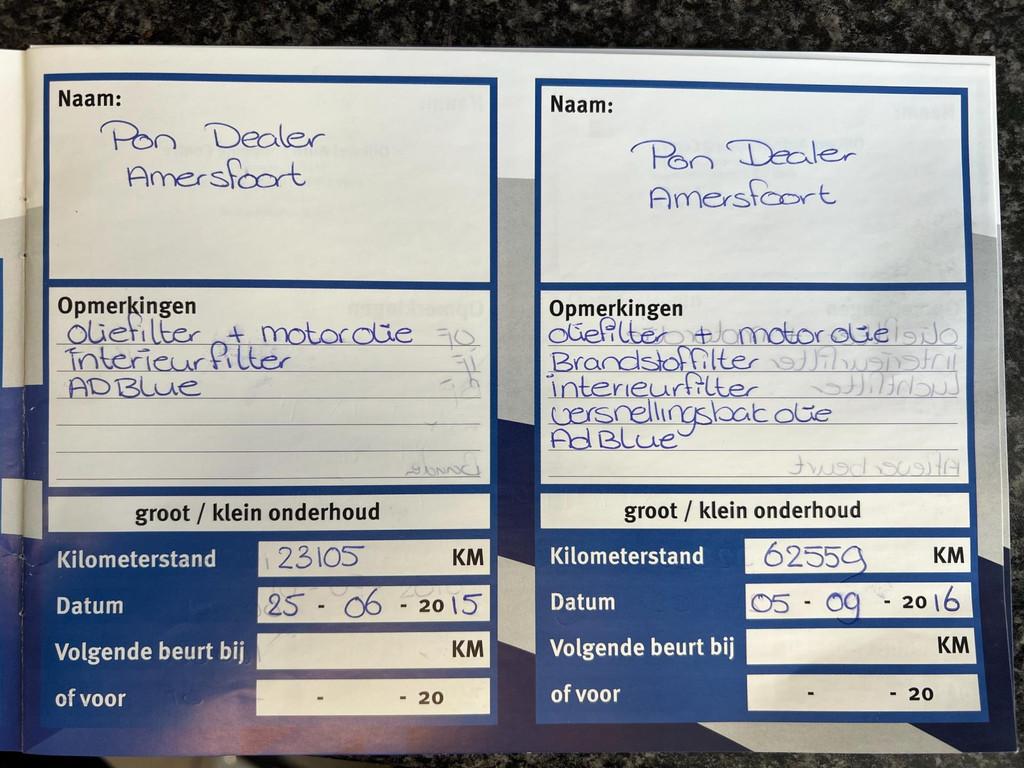 Naam:
Pon Dealer
Amersfoort
Opmerkingen
oliefilter + motorolie
interieurfilter
AD Blue
groot / klein onderhoud
Kilometerstand 23105 KM
Datum 25 - 06 - 2015
Volgende beurt bij KM
of voor - - 20
Naam:
Pon Dealer
Amersfoort
Opmerkingen
oliefilter + motorolie
Brandstoffilter
interieurfilter
versnellingsbak olie
AdBlue
groot / klein onderhoud
Kilometerstand 62559 KM
Datum 05 - 09 - 2016
Volgende beurt bij KM
of voor - - 20